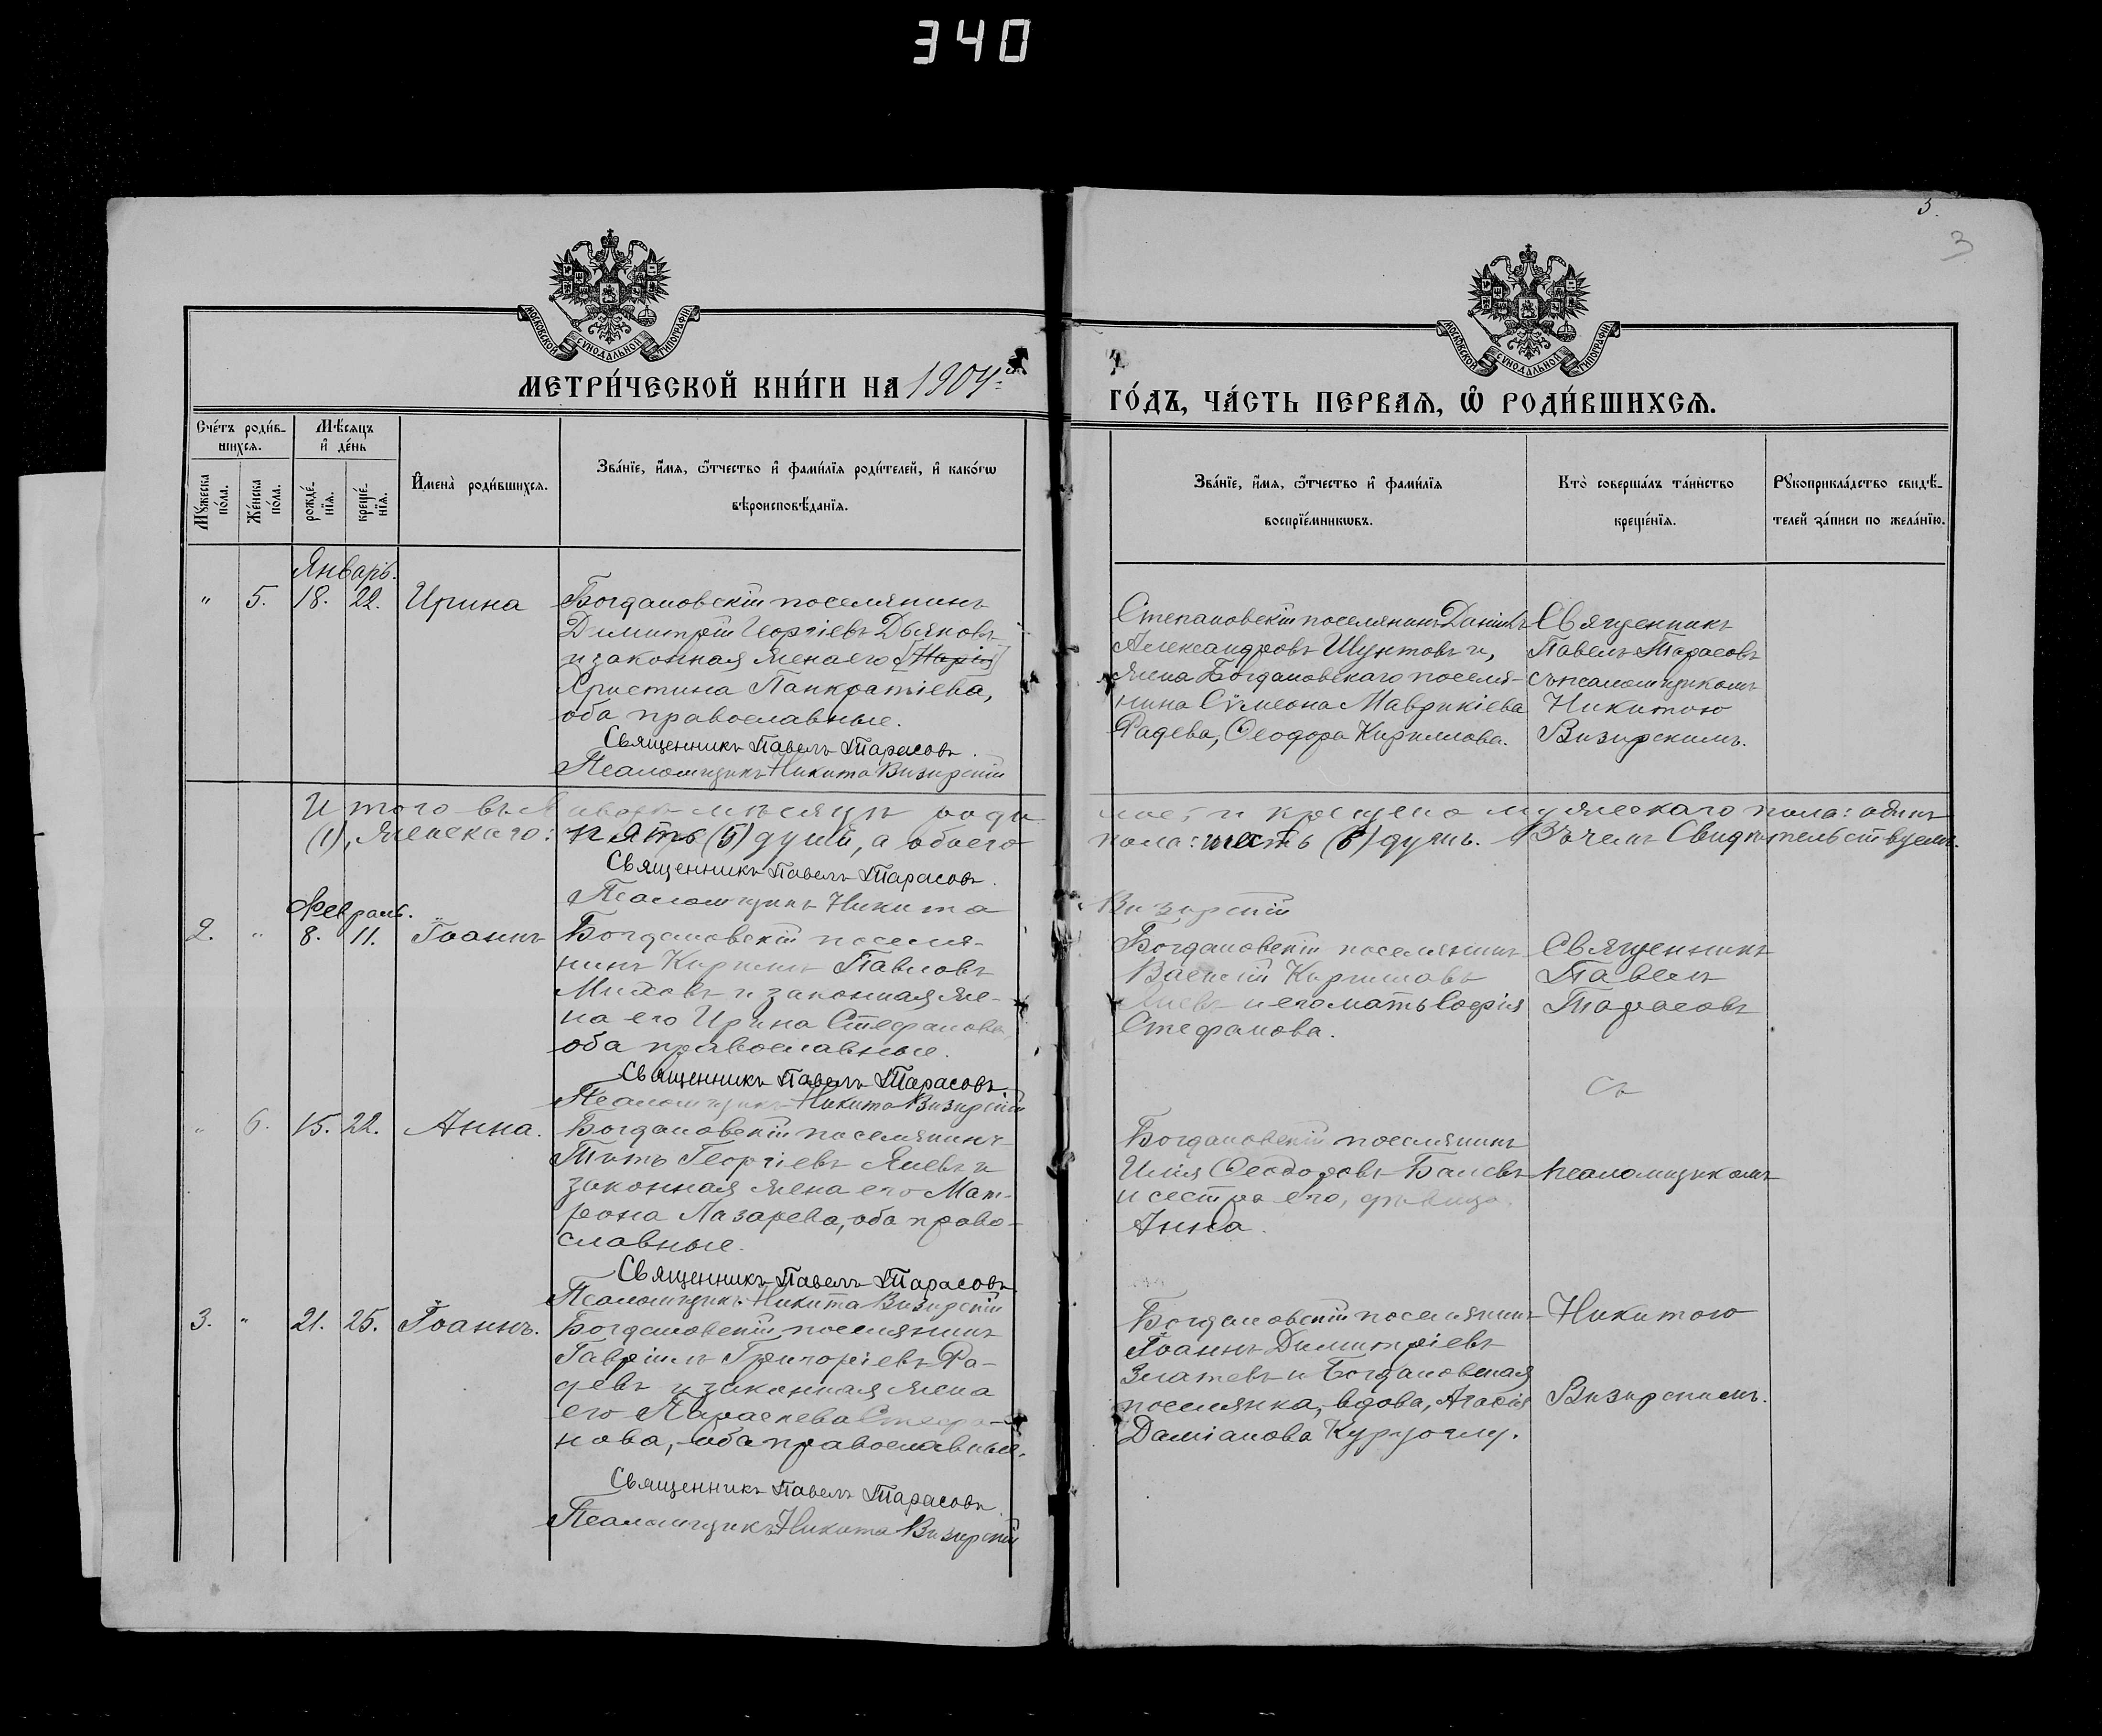 340
3.
3
МОСКОВСКОЙ СѴНОДАЛЬНОЙ ТИПОГРАФІИ
МОСКОВСКОЙ СѴНОДАЛЬНОЙ ТИПОГРАФІИ
МЕТРИ́ЧЕСКОЙ КНИ́ГИ НА 1904й
ГО́ДЪ, ЧА́СТЬ ПЕРВАѦ, Ѡ РОДИ́ВШИХСѦ.
Счётъ роди́в-
шихсѧ.
Мꙋ́жеска по́ла.
Же́нска по́ла.
Мѣ́сѧцъ
и҆ де́нь
рожде́-
нїѧ.
креще́-
нїѧ.
И҆мена̀ роди́вшихсѧ.
Зва́нїе, и҆́мѧ, ѻ҆́тчество и҆ фами́лїѧ роди́телей, и҆ како́гѡ
вѣроисповѣ́данїѧ.
Зва́нїе, и҆́мѧ, ѻ҆́тчество и҆ фами́лїѧ
воспрїе́мникѡвъ.
Кто̀ соверша́лъ та́инство
креще́нїѧ.
Рꙋкоприкла́дство свидѣ́-
телей за́писи по жела́нїю.
Январь.
" 5. 18. 22. Ирина
Богдановскій поселянинъ
Димитрій Георгіевъ Дьяковъ
и законная жена его [Марія]
Христина Панкратіева,
оба православные.
Священникъ Павелъ Тарасовъ.
Псаломщикъ Никита Визирскій
Степановскій поселянинъ Даніилъ
Александровъ Шунтовъ и,
жена Богдановскаго поселя-
нина Сѵмеона Маврикіева
Радева, Ѳеодора Кириллова.
Священникъ
Павелъ Тарасовъ
съ псаломщикомъ
Никитою
Визирскимъ.
Итого въ Январѣ мѣсяцѣ роди-
лось и крещено мужескаго пола: одинъ
(1), женскаго: пять (5) душъ, а обоего
пола: шесть (6) душъ. Въ чемъ Свидѣтельствуемъ.
Священникъ Павелъ Тарасовъ.
Псаломщикъ Никита
Визирскій
Февраль.
2. " 8. 11. Іоаннъ
Богдановскій поселя-
нинъ Кириллъ Павловъ
Миховъ и законная же-
на его Ирина Стефанова
оба православные.
Священникъ Павелъ Тарасовъ.
Псаломщикъ Никита Визирскій
Богдановскій поселянинъ
Василій Кирилловъ
Яневъ и его мать Софія
Стефанова.
Священникъ
Павелъ
Тарасовъ
съ
" 6. 15. 22. Анна.
Богдановскій поселянинъ
Титъ Георгіевъ Яневъ и
законная жена его Мат-
рона Лазарева, оба право-
славные.
Священникъ Павелъ Тарасовъ
Псаломщикъ Никита Визирскій
Богдановскій поселянинъ
Илія Ѳеодоровъ Баневъ
и сестра его, дѣвица
Анна.
псаломщикомъ
3. " 21. 25. Іоаннъ.
Богдановскій поселянинъ
Гавріилъ Григоріевъ Ра-
девъ и законная жена
его Параскева Стефа-
нова, оба православные.
Священникъ Павелъ Тарасовъ
Псаломщикъ Никита Визирскій
Богдановскій поселянинъ
Іоаннъ Димитріевъ
Златевъ и Богдановская
поселянка, вдова, Агафія
Даміанова Куруоглу.
Никитою
Визирскимъ.